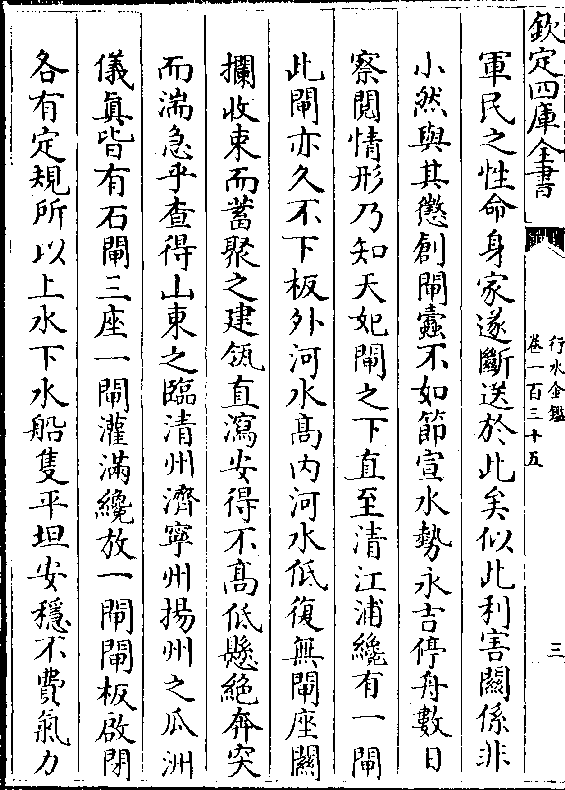 欽定四庫全書
行水金鑑
卷一百三十五
三
軍民之性命身家遂斷送於此矣似此利害關係非
小然與其懲創閘蠹不如節宣水勢永吉停舟數日
察閱情形乃知天妃閘之下直至清江浦纔有一閘
此閘亦久不下板外河水髙内河水低復無閘座關
攔收束而蓄聚之建瓴直瀉安得不髙低懸絶奔突
而湍急乎查得山東之臨清州濟寧州揚州之瓜洲
儀真皆有石閘三座一閘灌滿纔放一閘閘板啟閉
各有定規所以上水下水船隻平坦安穩不費氣力